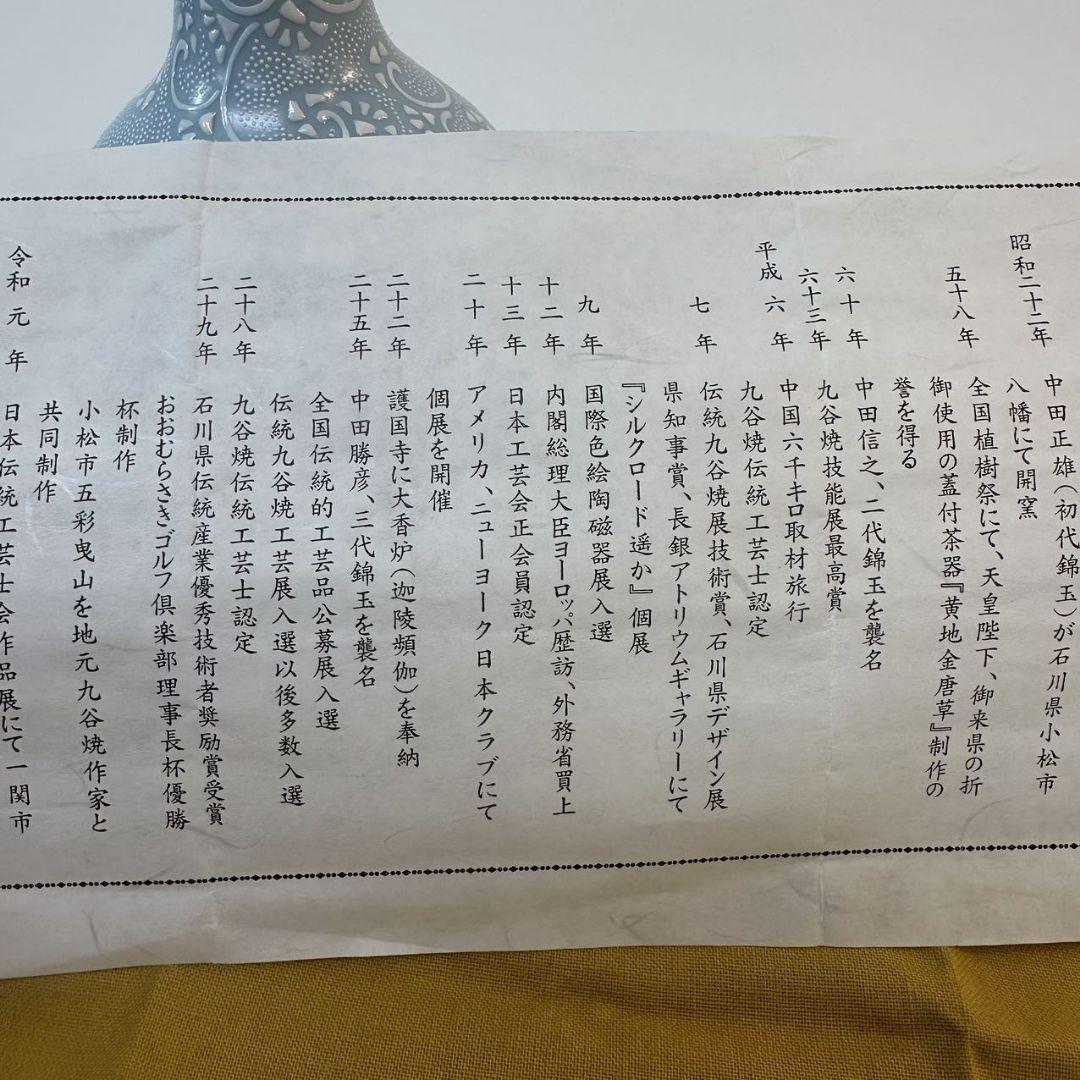 昭和二十二年　中田正雄（初代錦玉）が石川県小松市
八幡にて開窯
五十八年　全国植樹祭にて、天皇陛下、御来県の折
御使用の蓋付茶器『黄地金唐草』制作の
誉を得る
六十年　中田信之、二代錦玉を襲名
六十三年　九谷焼技能展最高賞
平成六年　中国六千キロ取材旅行
九谷焼伝統工芸士認定
七年　伝統九谷焼展技術賞、石川県デザイン展
県知事賞、長銀アトリウムギャラリーにて
『シルクロード遥か』個展
九年　国際色絵陶磁器展入選
十二年　内閣総理大臣ヨーロッパ歴訪、外務省買上
十三年　日本工芸会正会員認定
二十年　アメリカ、ニューヨーク日本クラブにて
個展を開催
二十二年　護国寺に大香炉（迦陵頻伽）を奉納
二十五年　中田勝彦、三代錦玉を襲名
全国伝統的工芸品公募展入選
伝統九谷焼工芸展入選以後多数入選
二十八年　九谷焼伝統工芸士認定
二十九年　石川県伝統産業優秀技術者奨励賞受賞
おおむらさきゴルフ倶楽部理事長杯優勝
杯制作
小松市五彩曳山を地元九谷焼作家と
共同制作
令和元年　日本伝統工芸士会作品展にて一関市